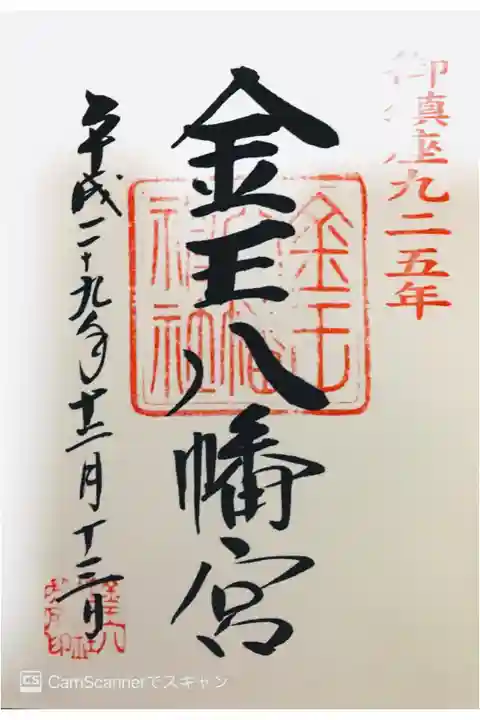 御鎮座九二五年
金王八幡宮
平成二十九年十二月十三日
CS CamScannerでスキャン